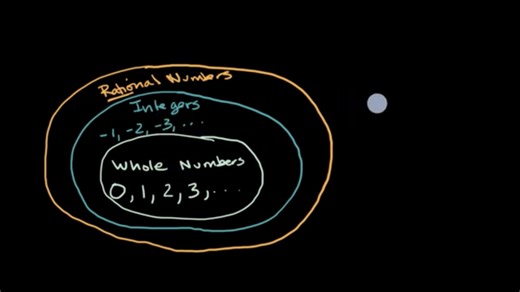 Rational Numbers
Integers
-1, -2, -3, ...
Whole Numbers
0, 1, 2, 3, ...